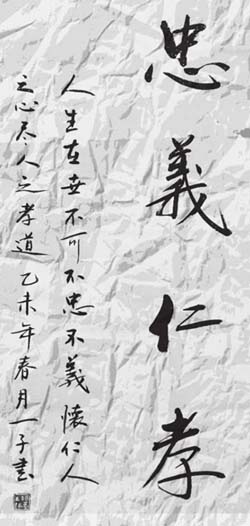 忠義仁孝
人生在世不可不忠不義懷仁人
之心尽人之孝道乙未年春月一子書